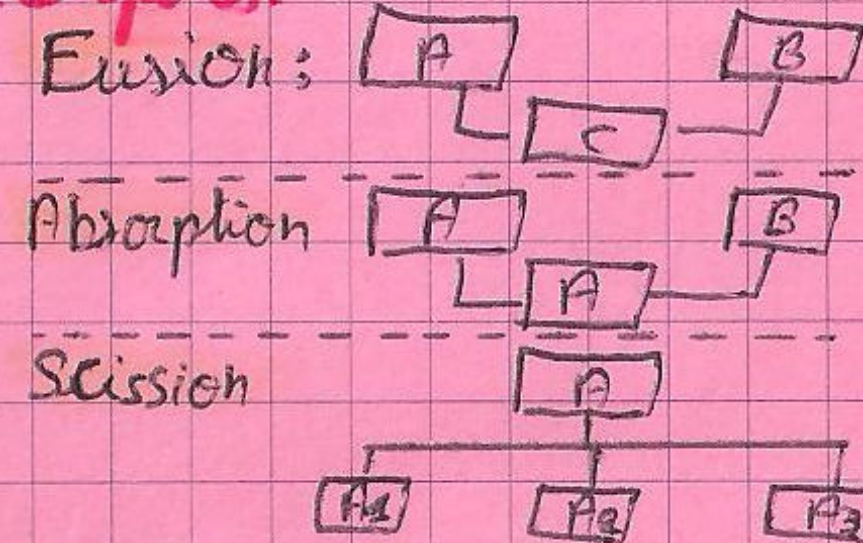 Fusion : A B
C
Absorption A B
A
Scission A
A1 A2 A3